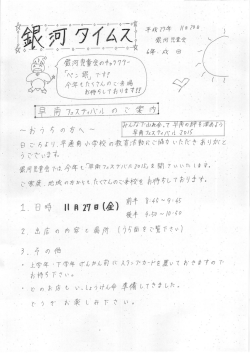 銀河タイムス
平成27年 11月20日
銀河児童会
6年
銀河児童会のキャラクター
「ペン銀」です!
今年もたくさんのご来場
お待ちしております!!
早南フェスティバルのご案内
早南フェスティバル 2015
〜おうちの方へ〜
日ごろより、早通南小学校の教育活動にご協力いただきありがと
うございます。
銀河児童会では、今年も「早南フェスティバル2015」を開きたいと思います。
ご家庭、地域の方からもたくさんのご来校をお待ちしております。
1. 日時 11月27日(金) 前半 8:45〜9:45
後半 9:50〜10:50
2. 出店の内容と場所 (うら面をご覧下さい)
3. その他
・上学年・下学年げんかん前にスリップカードを置いておきますので
お持ち下さい。
・どのお店もいっしょうけん命、準備してきました。
ぜひ お楽しみ下さい。